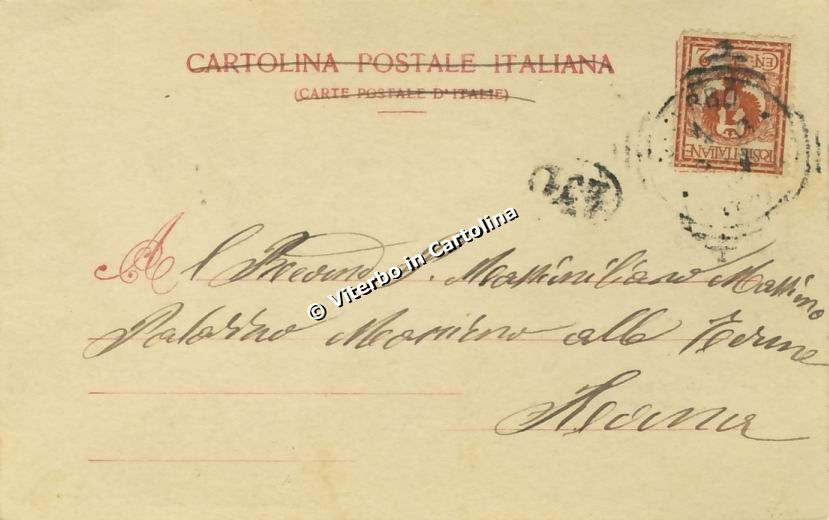 CARTOLINA POSTALE ITALIANA
(CARTE POSTALE D'ITALIE)
CEN. 2
POSTE ITALIANE
230
© Viterbo in Cartolina
Al Massimiliano Massimo
Palazzo Massimo alle Terme
Roma